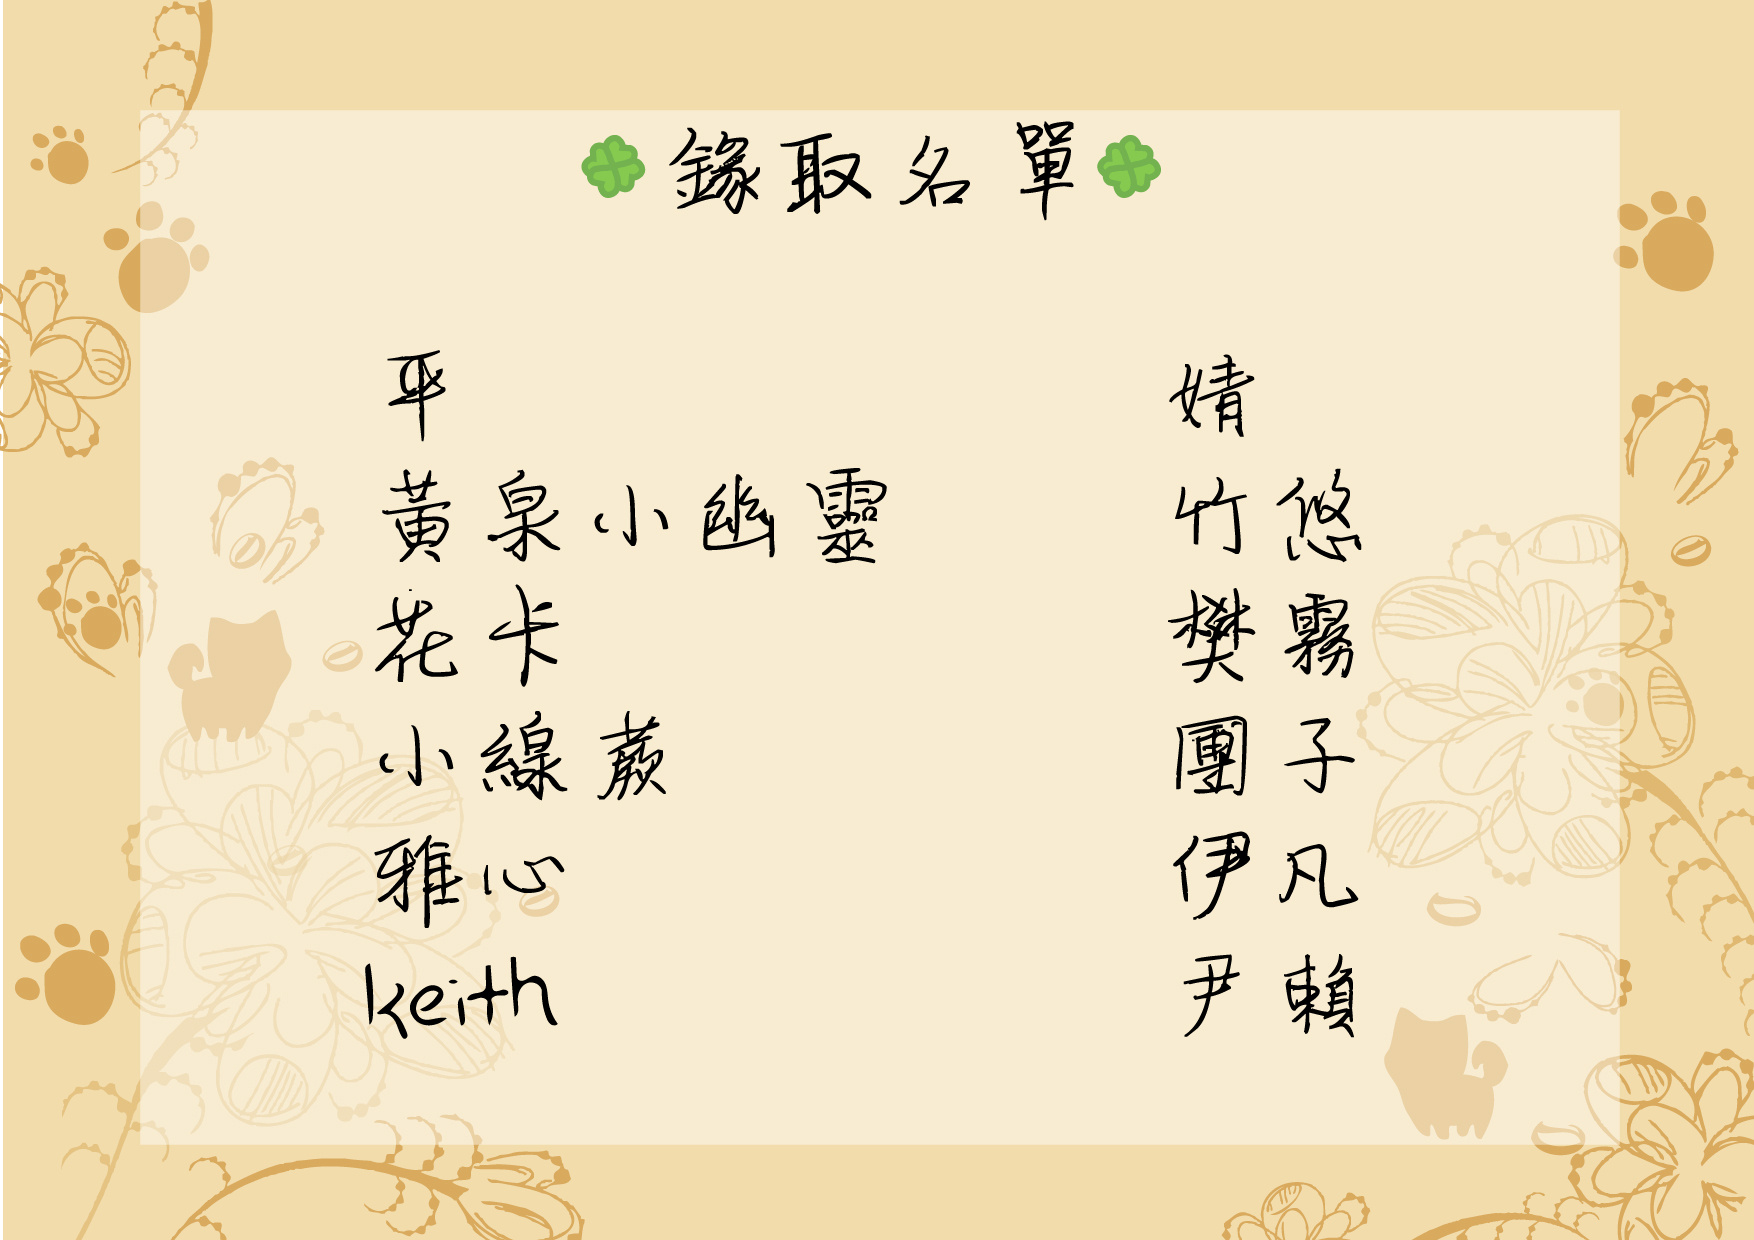 錄取名單
平
黃泉小幽靈
花卡
小線蕨
雅心
keith
婧
竹悠
樊霧
團子
伊凡
尹賴